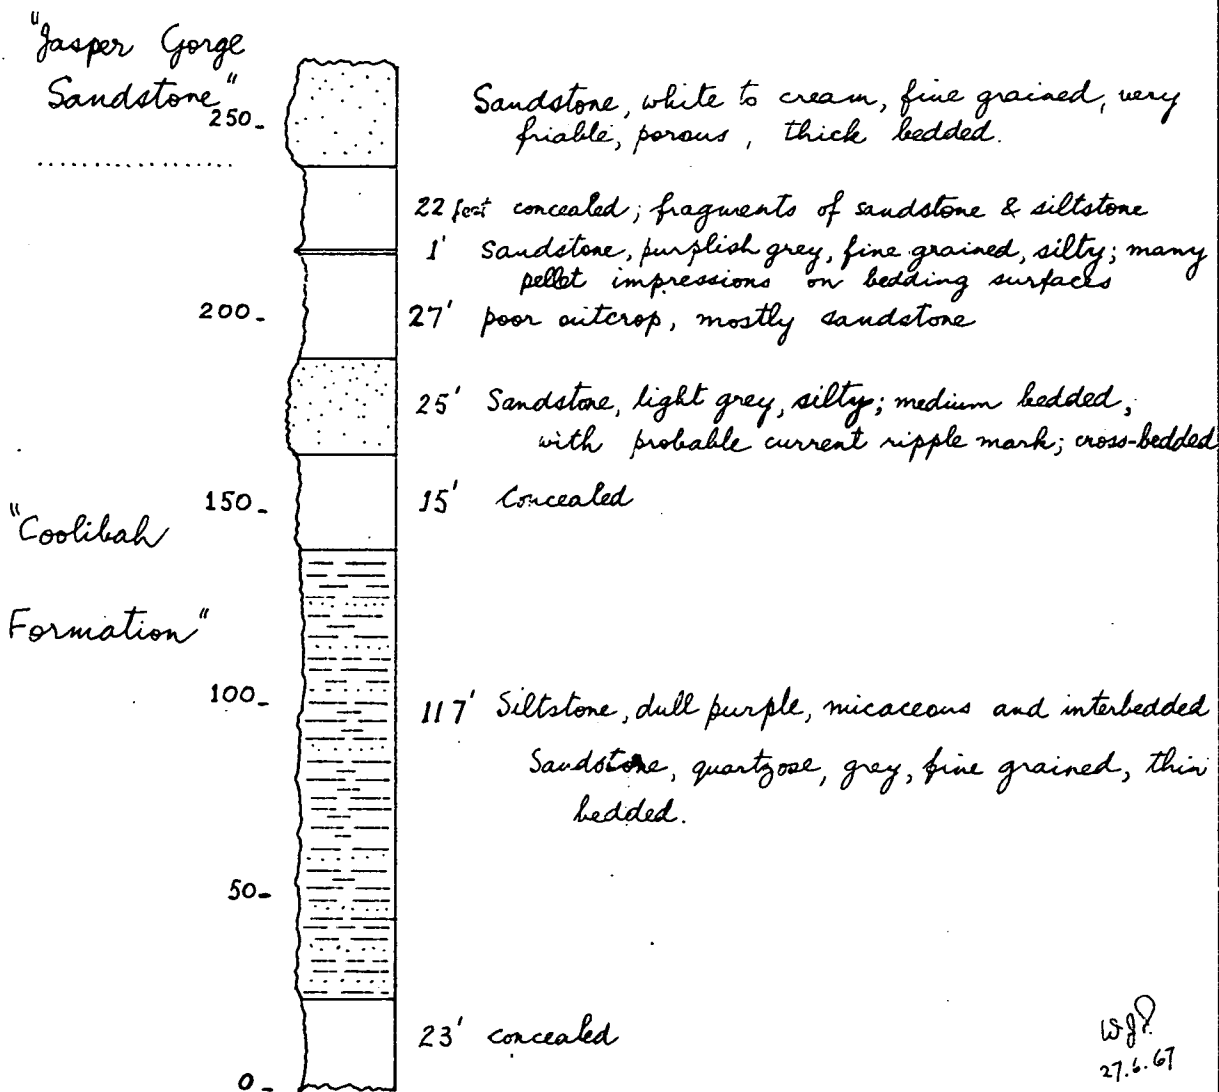 "Jasper Gorge
Sandstone"
250-
Sandstone, white to cream, fine grained, very
friable, porous, thick bedded.
22 feet concealed; fragments of sandstone & siltstone
1' Sandstone, purplish grey, fine grained, silty; many
pellet impressions on bedding surfaces
200-
27' poor outcrop, mostly sandstone
25' Sandstone, light grey, silty; medium bedded,
with probable current ripple mark; cross-bedded
150-
15' Concealed
"Coolibah
Formation"
100-
117' Siltstone, dull purple, micaceous and interbedded
Sandstone, quartzose, grey, fine grained, thin
bedded.
50-
23' concealed
0-
27.6.67